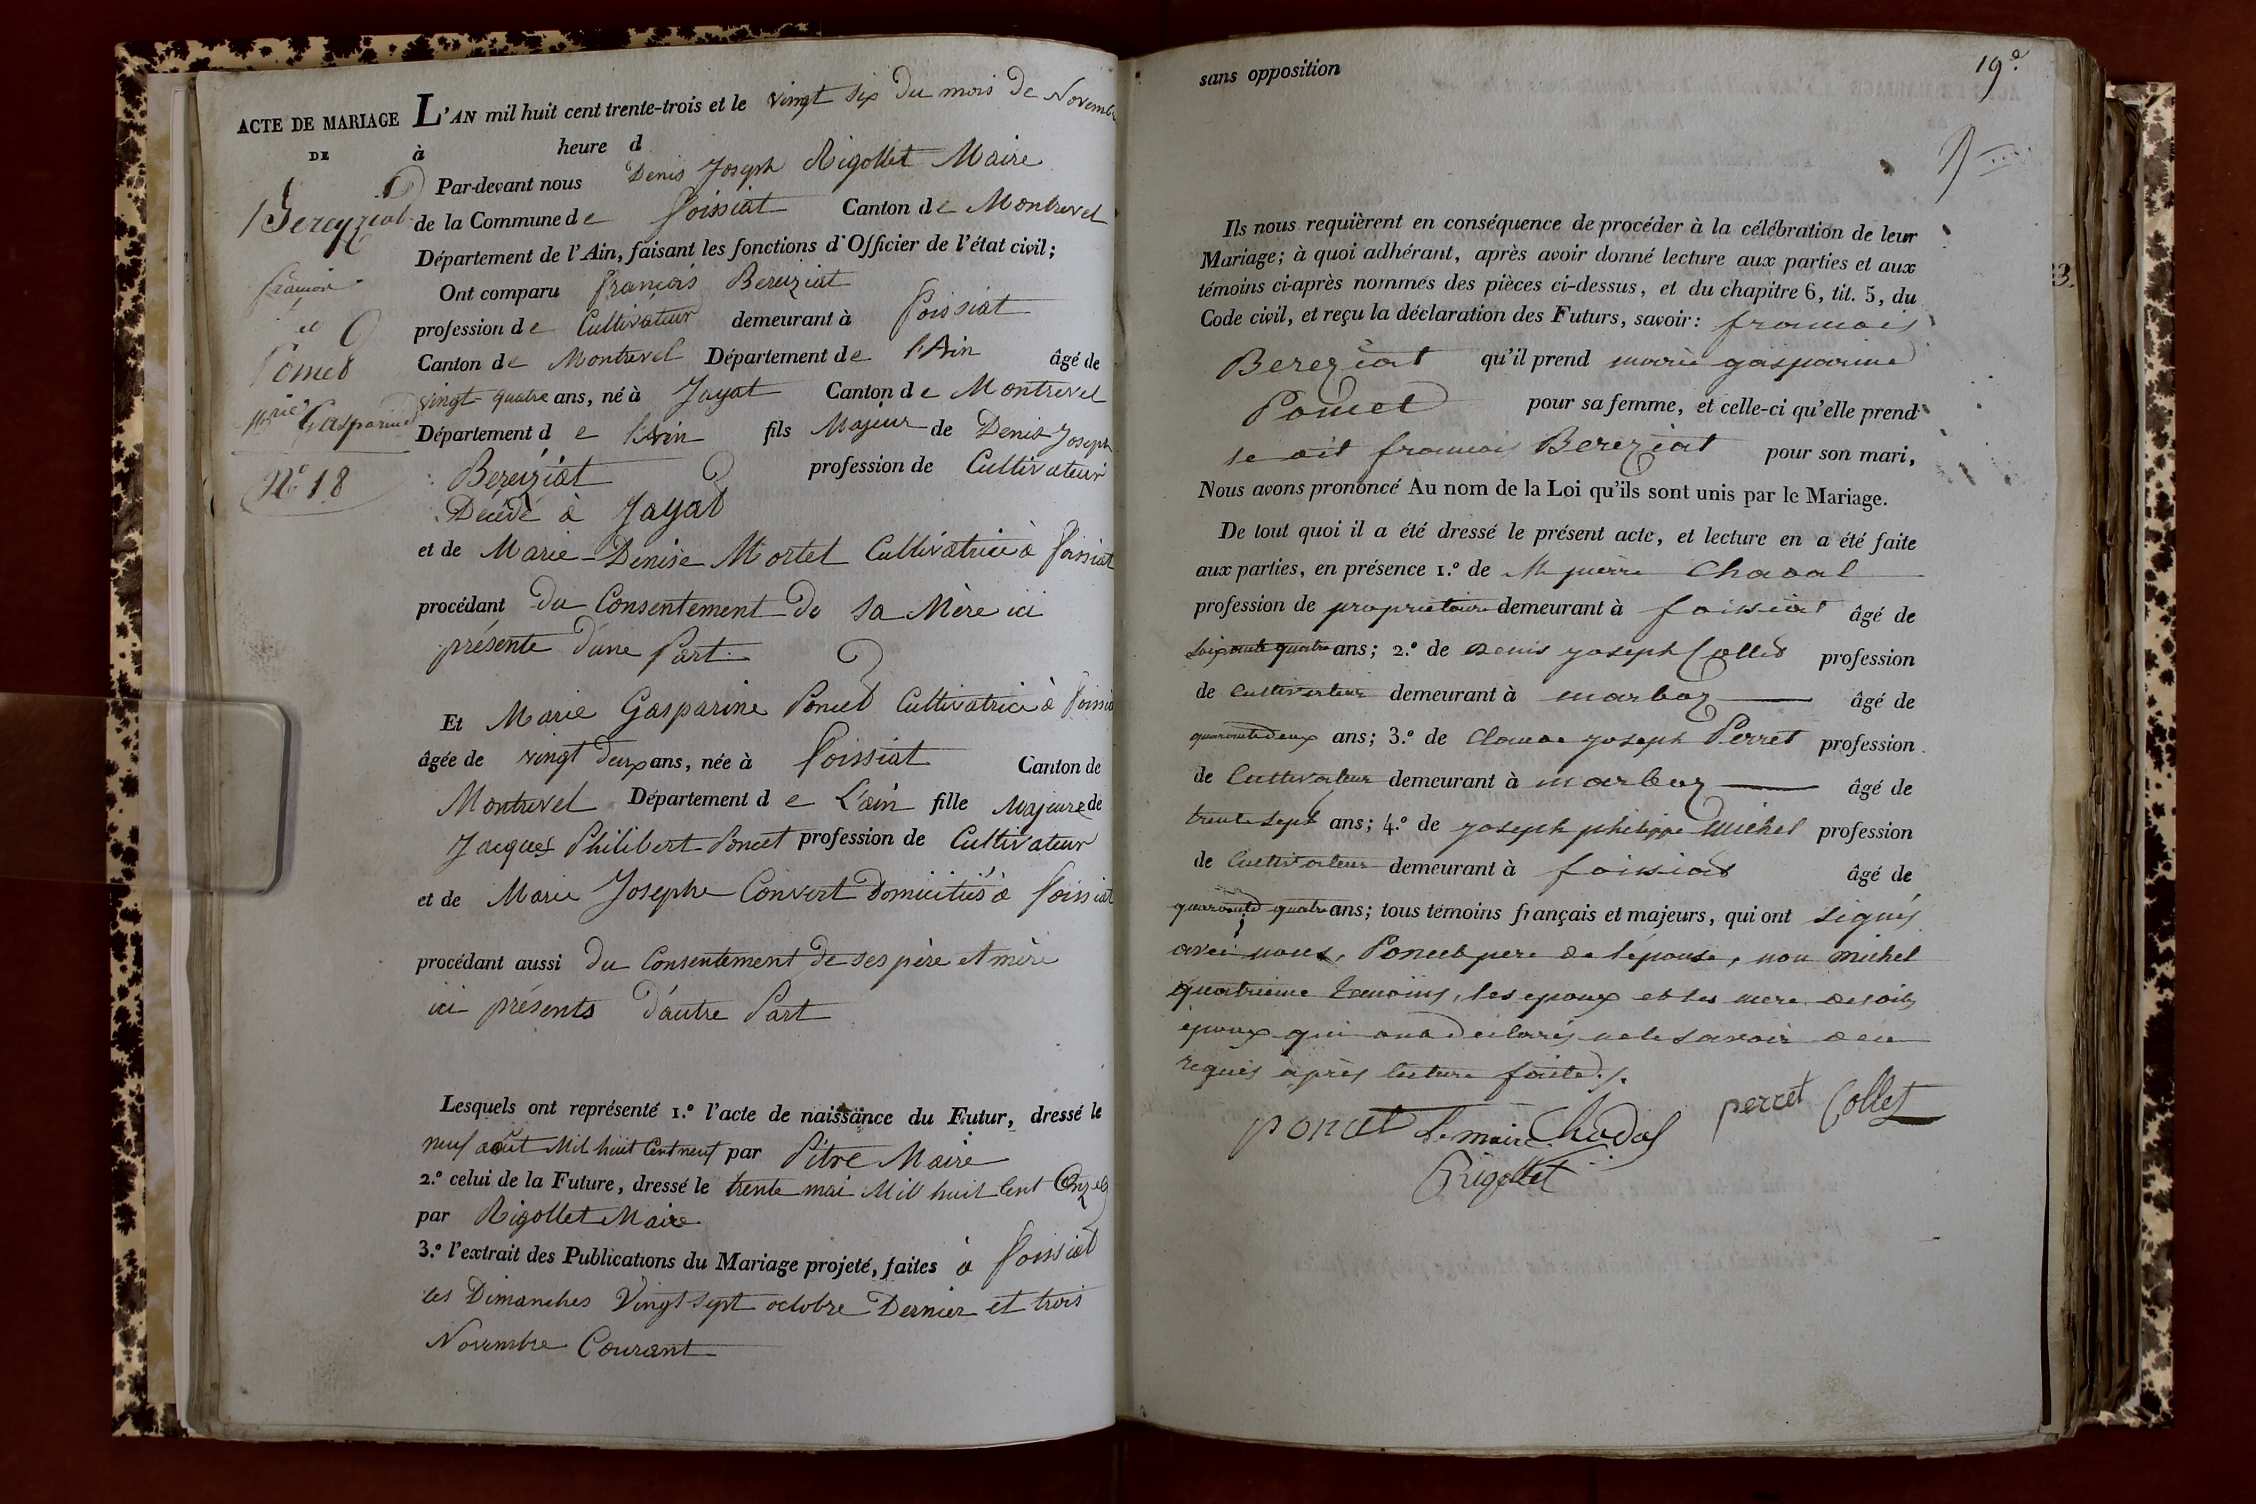 ACTE DE MARIAGE
DE
Bereyziat
François
et
Poncet
Mrie Gasparine
No 18
L'AN mil huit cent trente-trois et le vingt six du mois de Novembre
à heure d
Par-devant nous Denis Joseph Rigollet Maire
de la Commune de foissiat Canton de Montrevel
Département de l'Ain, faisant les fonctions d'Officier de l'état civil;
Ont comparu françois Bereiziat
profession de Cultivateur demeurant à foissiat
Canton de Montrevel Département de l'Ain âgé de
vingt-quatre ans, né à Jayat Canton de Montrevel
Département de l'Ain fils Majeur de Denis Joseph
Bereiziat profession de Cultivateur
Décédé à Jayat
et de Marie-Denise Mortel Cultivatrice à foissiat
procédant du Consentement de sa Mère ici
présente d'une Part
Et Marie Gasparine Poncet Cultivatrice à foissiat
âgée de vingt deux ans, née à foissiat Canton de
Montrevel Département de L'ain fille Majeure de
Jacques Philibert Poncet profession de Cultivateur
et de Marie Josephe Convert Domiciliés à foissiat
procédant aussi du Consentement de ses père et mère
ici présents d'autre Part
Lesquels ont représenté 1.º l'acte de naissance du Futur, dressé le
neuf août Mil huit Cent neuf par Pitre Maire
2.º celui de la Future, dressé le trente mai Mil huit Cent Onze
par Rigollet Maire
3.º l'extrait des Publications du Mariage projeté, faites à foissiat
les Dimanches Vingt-sept octobre Dernier et trois
Novembre Courant
19e
sans opposition
Ils nous requièrent en conséquence de procéder à la célébration de leur
Mariage; à quoi adhérant, après avoir donné lecture aux parties et aux
témoins ci-après nommés des pièces ci-dessus, et du chapitre 6, tit. 5, du
Code civil, et reçu la déclaration des Futurs, savoir: francois
Bereziat qu'il prend marie gasparine
Poncet pour sa femme, et celle-ci qu'elle prend
le dit francois Bereziat pour son mari,
Nous avons prononcé Au nom de la Loi qu'ils sont unis par le Mariage.
De tout quoi il a été dressé le présent acte, et lecture en a été faite
aux parties, en présence 1.º de M pierre Chadal
profession de proprietaire demeurant à foissiat âgé de
soixante quatre ans; 2.º de denis joseph Collet profession
de Cultivateur demeurant à marboz âgé de
quarante deux ans; 3.º de Claude joseph Perret profession
de Cultivateur demeurant à marboz âgé de
trente sept ans; 4.º de joseph philippe Michel profession
de Cultivateur demeurant à foissiat âgé de
quarante quatre ans; tous témoins français et majeurs, qui ont signés
avec nous, Poncet pere de l'épouse, non michel
quatrieme temoins, les epoux et les mere desdits
époux qui ont déclarés ne le savoir de ce
requis après lecture faite ./.
poncet le maire Chadal perret Collet
Rigollet